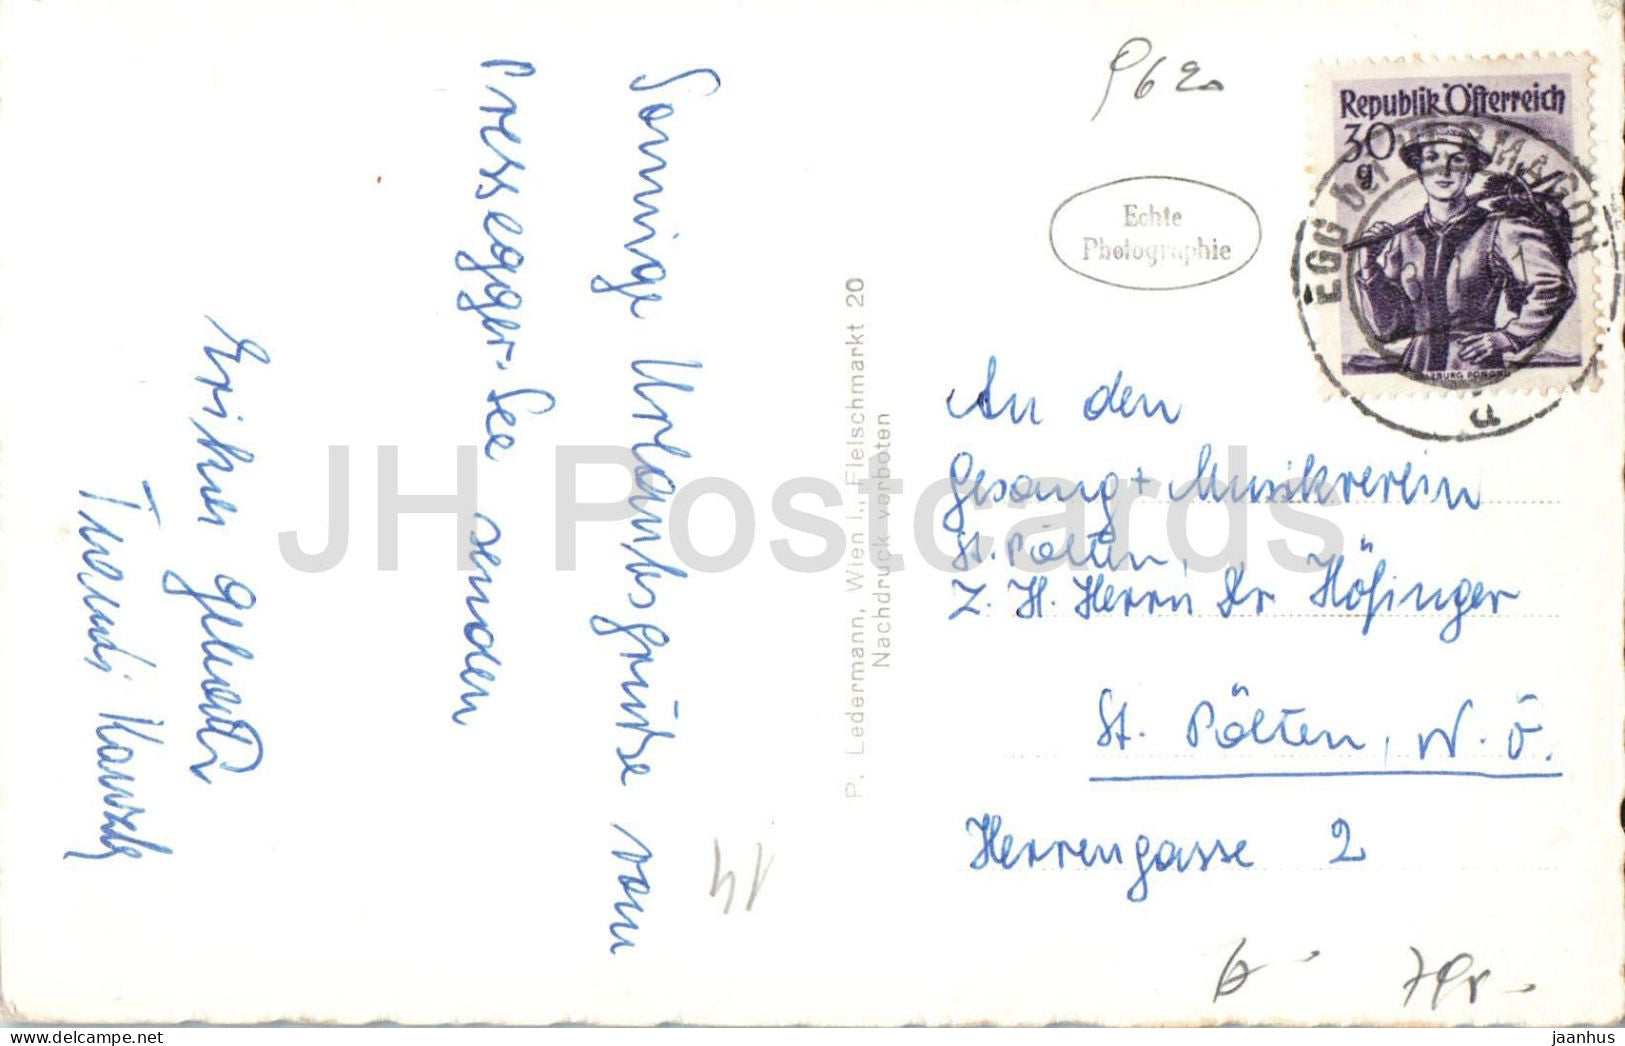 Sonnige Urlaubsgrüße vom
Pressegger-See senden
P. Ledermann, Wien I., Fleischmarkt 20
Nachdruck verboten
Echte
Photographie
Republik Österreich
30
g
SALZBURG PONGAU
EGG bei HERMAGOR
An den
Gesang + Musikverein
St. Pölten,
Z. H. Herrn Dr Höfinger
St. Pölten, N. Ö.
Herrengasse 2
14
JH Postcards
delcampe.net
jaanhus